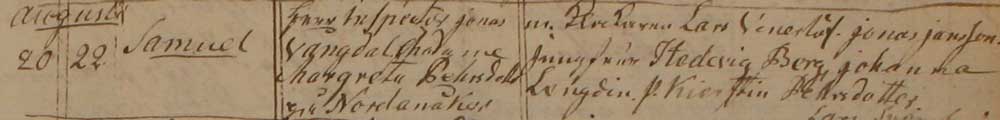 Augusti
20 22 Samuel
Herr Inspector Jonas
Vangdal Madame
Margreta Pehrsdotter
Nordanåker
Klockaren Lars jonas jansson
Jungfrur Hedevig Berg, johanna
Lengdin. P. Kierstin Pehrsdotter
Lars